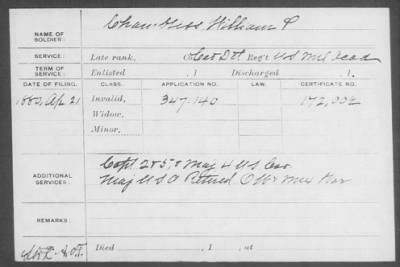 NAME OF SOLDIER: Chambliss William P
SERVICE: Late rank, Cadet Det Reg't US Mil Acad
TERM OF SERVICE: Enlisted , 1 Discharged , 1.
DATE OF FILING. CLASS. APPLICATION NO. LAW. CERTIFICATE NO.
1880, Ap. 21 Invalid, 347.140 172,002
Widow,
Minor,
ADDITIONAL SERVICES: Capt 2 & 5, & Maj 4 US Cav
Maj U.S.A Retired. Mex War
REMARKS:
Died , 1 , at